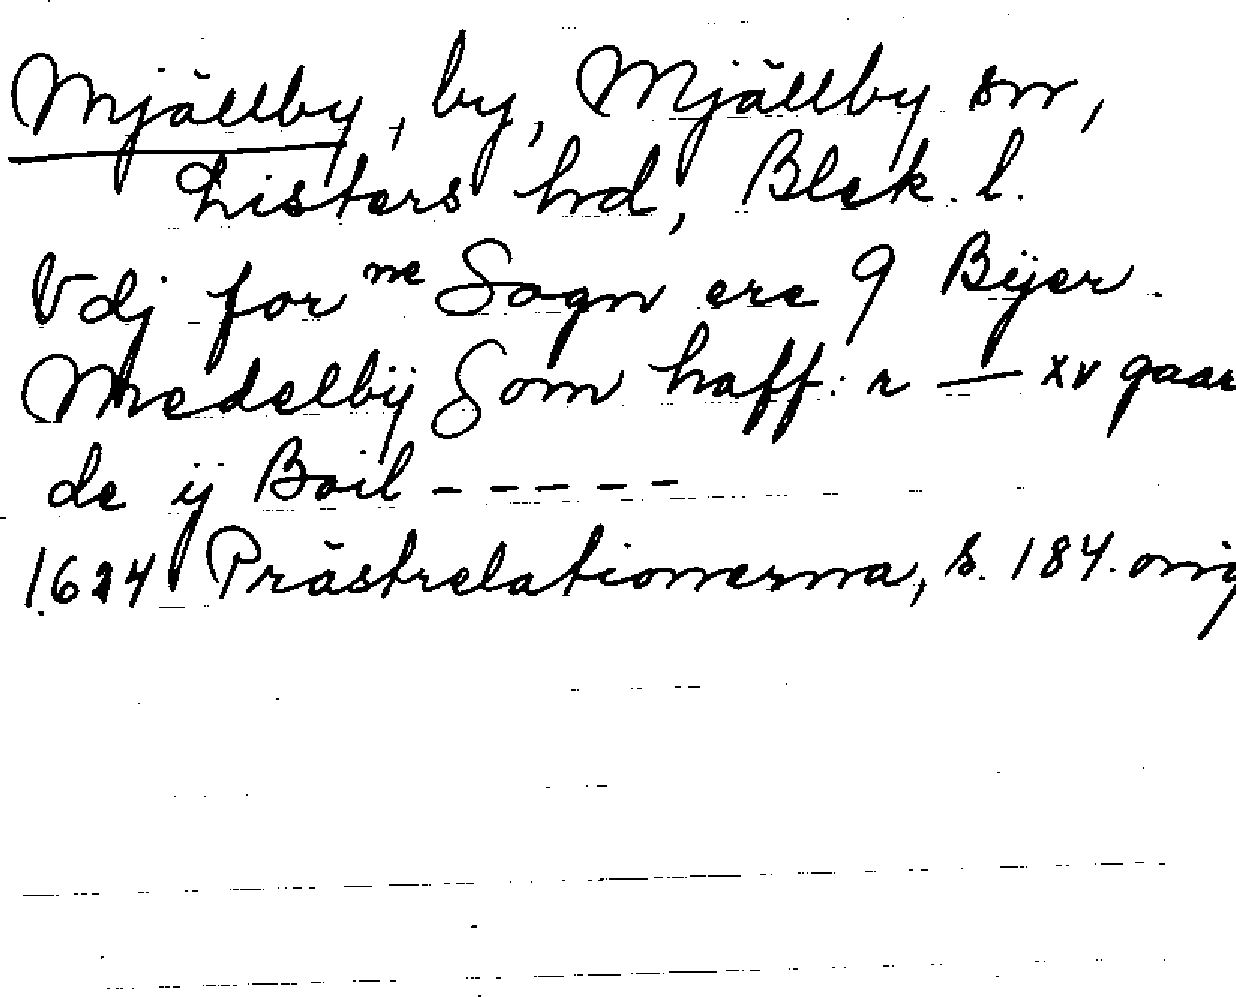 Mjällby, by, Mjällby sn,
Listers hd, Blek. l.
Vdj for ne Sogn ere 9 Bÿer.
Medelbÿ Som haff: r — xv gaar
de ij Boil - - - - -
1624 Prästrelationerna, s. 184. orig